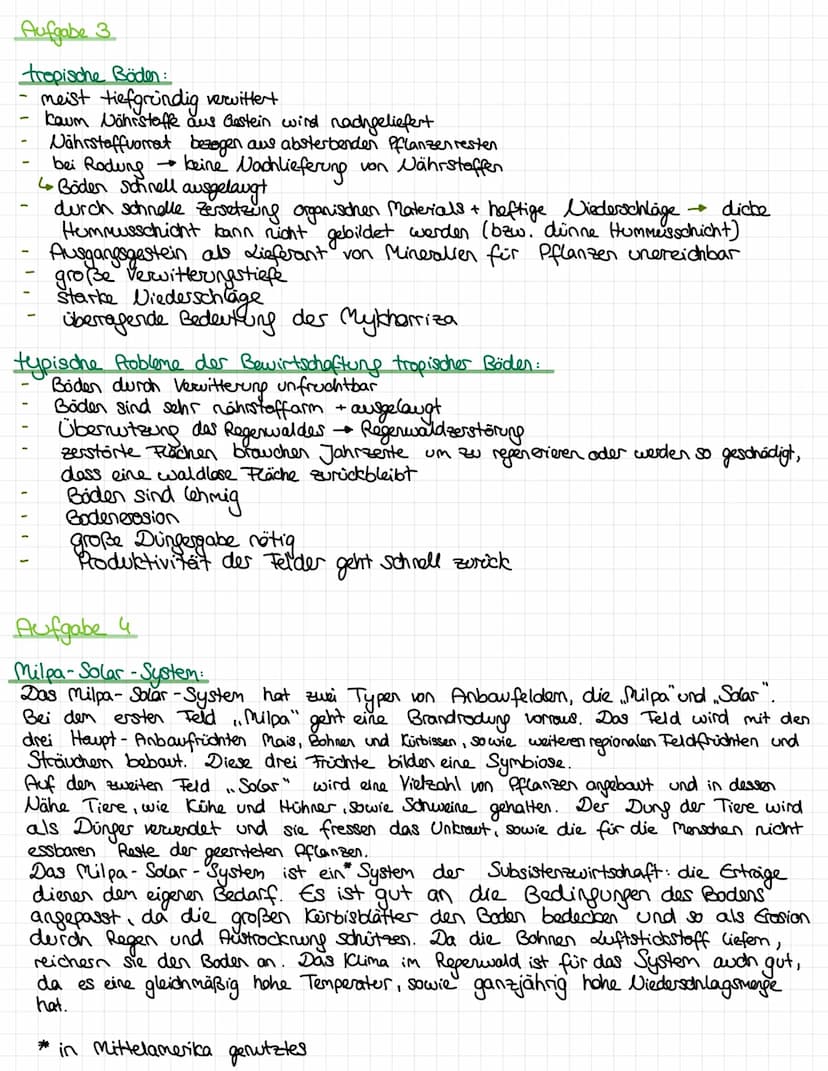 Aufgabe 3
tropische Böden:
- meist tiefgründig verwittert
- kaum Nährstoffe aus Gestein wird nachgeliefert
- Nährstoffvorrat bezogen aus absterbenden Pflanzenresten
- bei Rodung → keine Nachlieferung von Nährstoffen
↳ Böden schnell ausgelaugt
- durch schnelle Zersetzung organischen Materials + heftige Niederschläge → dicke
Hummusschicht kann nicht gebildet werden (bzw. dünne Hummusschicht)
- Ausgangsgestein als Lieferant von Mineralien für Pflanzen unereichbar
- große Verwitterungstiefe
- starke Niederschläge
- überragende Bedeutung des Mykhorriza
typische Probleme der Bewirtschaftung tropischer Böden:
- Böden durch Verwitterung unfruchtbar
- Böden sind sehr nährstoffarm + ausgelaugt
- Übernutzung des Regenwaldes → Regenwaldzerstörung
- zerstörte Flächen brauchen Jahrzente um zu regenerieren oder werden so geschädigt,
dass eine waldlose Fläche zurückbleibt
- Böden sind lehmig
- Bodenerosion
- große Düngergabe nötig
- Produktivität der Felder geht schnell zurück
Aufgabe 4
Milpa-Solar-System:
Das Milpa-Solar-System hat zwei Typen von Anbaufeldern, die „Milpa" und „Solar".
Bei dem ersten Feld „Milpa" geht eine Brandrodung voraus. Das Feld wird mit den
drei Haupt-Anbaufrüchten Mais, Bohnen und Kürbissen, sowie weiteren regionalen Feldfrüchten und
Sträuchern bebaut. Diese drei Früchte bilden eine Symbiose.
Auf dem zweiten Feld „Solar" wird eine Vielzahl von Pflanzen angebaut und in dessen
Nähe Tiere, wie Kühe und Hühner, sowie Schweine gehalten. Der Dung der Tiere wird
als Dünger verwendet und sie fressen das Unkraut, sowie die für die Menschen nicht
essbaren Reste der geernteten Pflanzen.
Das Milpa-Solar-System ist ein* System der Subsistenzwirtschaft: die Erträge
dienen dem eigenen Bedarf. Es ist gut an die Bedingungen des Bodens
angepasst, da die großen Kürbisblätter den Boden bedecken und so als Erosion
durch Regen und Austrocknung schützen. Da die Bohnen Luftstickstoff liefern,
reichern sie den Boden an. Das Klima im Regenwald ist für das System auch gut,
da es eine gleichmäßig hohe Temperatur, sowie ganzjährig hohe Niederschlagsmenge
hat.
* in Mittelamerika genutztes